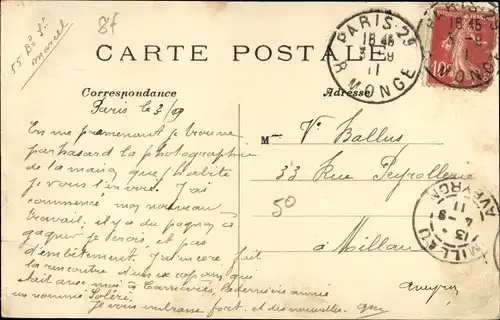 55 Bd St
Marcel
8f
CARTE POSTALE
PARIS-25
R MONGE
18 45
3-9
11
PARIS-25
18 45
3-9
MONGE
10
Correspondance
Adresse
Paris le 3/9
En me promenant je trouve
par hasard la photographie
de la maison que j'habite
je vous l'envoie. J'ai
commencé mon nouveau
travail. il y a du pognon à
gagner je crois et pas
d'embêtement. J'ai fait
la rencontre d'un copain qui
était avec moi à Camarès, la dernière année
un nommé
Je vous embrasse fort. et des nouvelles.
M V. Ballus
33 Rue Peyrollerie
50
à Millau
Aveyron
MILLAU
AVEYRON
13
4-9
11